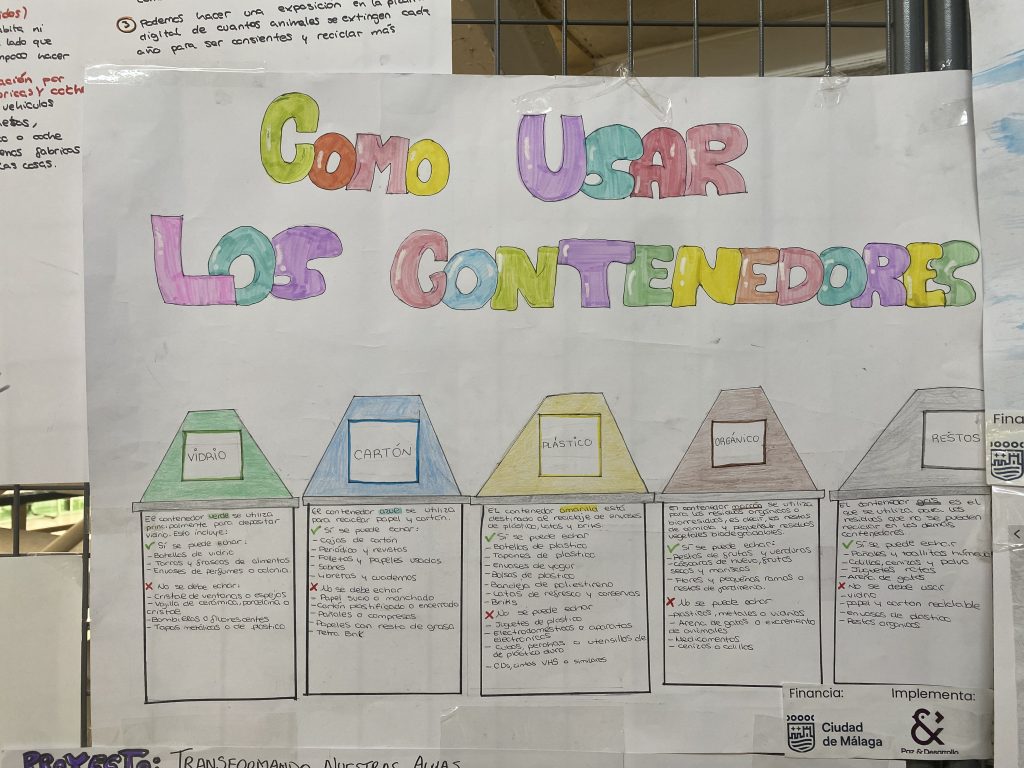 ③ Podemos hacer una exposición en la pizarra
digital de cuantos animales se extingen cada
año para ser consientes y reciclar más
lado que
hacer
vehículos
o coche
fabricas
cosas.
COMO USAR
LOS CONTENEDORES
VIDRIO
El contenedor verde se utiliza
principalmente para depositar
vidrio. Esto incluye:
✓ Si se puede echar:
- Botellas de vidrio
- Tarros y frascos de alimentos
- Envases de perfumes o colonia.
✗ No se debe echar:
- Cristal de ventanas o espejos
- Vajilla de cerámica, porcelana o
cristal
- Bombillas o fluorescentes
- Tapas metálicas o de plástico
CARTÓN
El contenedor azul se utiliza
para reciclar papel y cartón.
✓ Si se puede echar:
- Cajas de cartón
- Periódico y revistas
- Folletos y papeles usados
- Sobres
- Libretas y cuadernos
✗ No se debe echar
- Papel sucio o manchado
- Cartón plastificado o encerado
- Pañales o compresas
- Papeles con resto de grasa
- Tetra Brik
PLÁSTICO
El contenedor amarillo está
destinado al reciclaje de envases
de plástico, latas y briks:
✓ Si se puede echar
- Botellas de plástico
- Tapones de plástico
- Envases de yogur
- Bolsas de plástico
- Bandeja de poliestireno
- Latas de refresco y conservas
- Briks
✗ No se puede echar
- Juguetes de plástico
- Electrodomésticos o aparatos
electrónicos
- Cubos, perchas o utensilios de
de plástico duro
- CDs, cintas VHS o similares
ORGÁNICO
El contenedor marrón se utiliza
para los residuos orgánicos o
biorresiduos, es decir, los restos
de comida y pequeños residuos
vegetales biodegradables.
✓ Si se puede echar:
- Restos de frutas y verduras
- Cáscaras de huevo, frutos
secos y mariscos
- Flores y pequeñas ramas o
restos de jardinería.
✗ No se puede echar
- plásticos, metales o vidrios
- Arena de gatos o excremento
de animales
- Medicamentos
- cenizas o colillas
RESTOS
El contenedor gris es el
que se utiliza para los
residuos que no se pueden
reciclar en los demás
contenedores.
✓ Si se puede echar:
- Pañales y toallitas
- Colillas, cenizas y polvo
- Juguetes rotos
- Arena de gatos
✗ No se debe usar
- vidrio
- papel y cartón reciclable
- envases de plástico
- Restos orgánicos
Financia: Implementa:
Ciudad
de Málaga
Paz & Desarrollo
PROYECTO: TRANSFORMANDO NUESTRAS AULAS